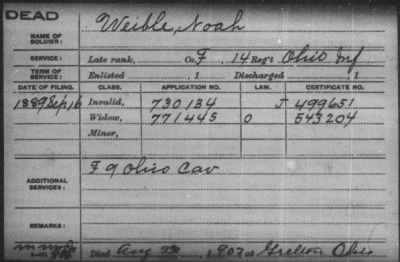 DEAD
NAME OF SOLDIER: Weible, Noah
SERVICE: Late rank, Co. F, 14 Reg't Ohio Inf
TERM OF SERVICE: Enlisted , 1 Discharged , 1
DATE OF FILING. CLASS. APPLICATION NO. LAW. CERTIFICATE NO.
1889 Sep 16 Invalid, 730134 J 499651
Widow, 771445 O 543204
Minor,
ADDITIONAL SERVICES: F 9 Ohio Cav
REMARKS:
Died Aug , 1907, at Grelton Ohio